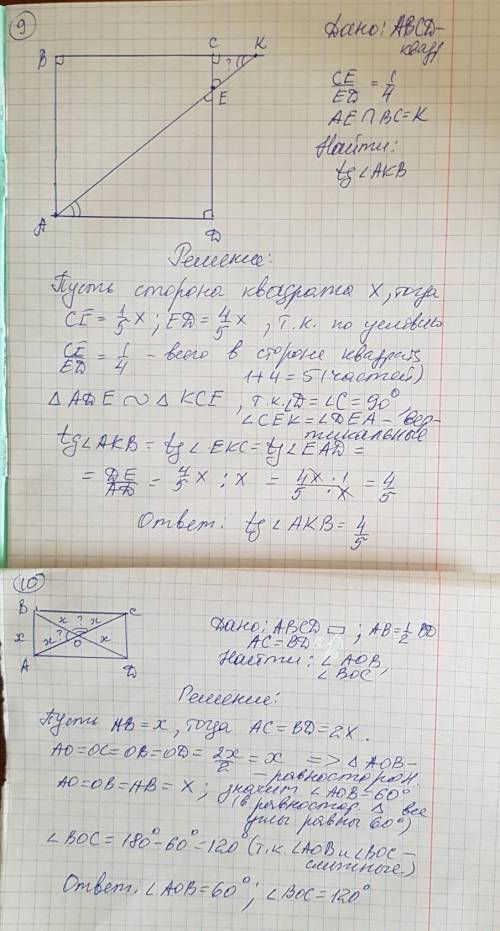 9
Дано: ABCD-
квадр
B C K
?
E
A D
CE/ED = 1/4
AE∩BC=K
Найти:
tg∠AKB
Решение:
Пусть сторона квадрата x, тогда
CE = 1/5 x ; ED = 4/5 x , т.к. по условию
CE/ED = 1/4 - всего в стороне квадрата
1+4=5 (частей)
△ADE ∾ △KCE , т.к. ∠D=∠C=90°,
∠CEK=∠DEA - вер-
тикальные
tg∠AKB = tg∠EKC = tg∠EAD =
= DE/AD = 4/5 x : x = 4x·1/5·x = 4/5
Ответ: tg∠AKB = 4/5
10
B C
x ? x
x x ? O x
A D
Дано: ABCD ▭ ; AB=1/2 BD
AC=BD
Найти: ∠AOB,
∠BOC
Решение:
Пусть AB=x, тогда AC=BD=2x.
AO=OC=OB=OD= 2x/2 = x => △AOB-
-равносторон.
AO=OB=AB=x ; значит ∠AOB=60°
(в равностор. △ все
углы равны 60°)
∠BOC=180°-60°=120 (т.к. ∠AOB и ∠BOC -
смежные.)
Ответ: ∠AOB=60° ; ∠BOC=120°